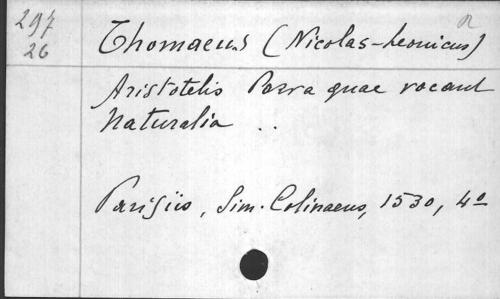 297
26
R
Thomaeus (Nicolas-Leonicus)
Aristotelis Parva quae vocant
Naturalia ..
Parisiis, Sim. Colinaeus, 1530, 4º